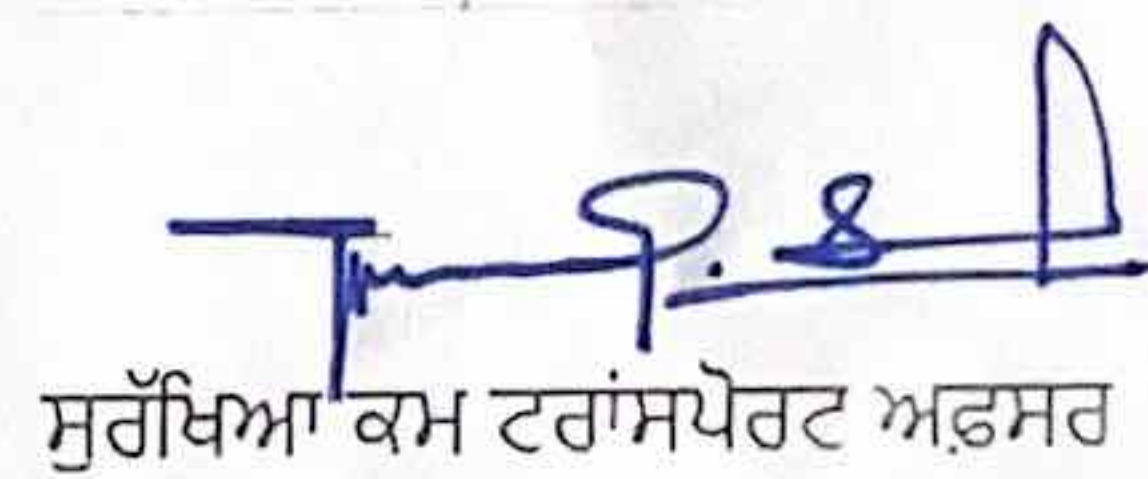 ਸੁਰੱਖਿਆ ਕਮ ਟਰਾਂਸਪੋਰਟ ਅਫ਼ਸਰ